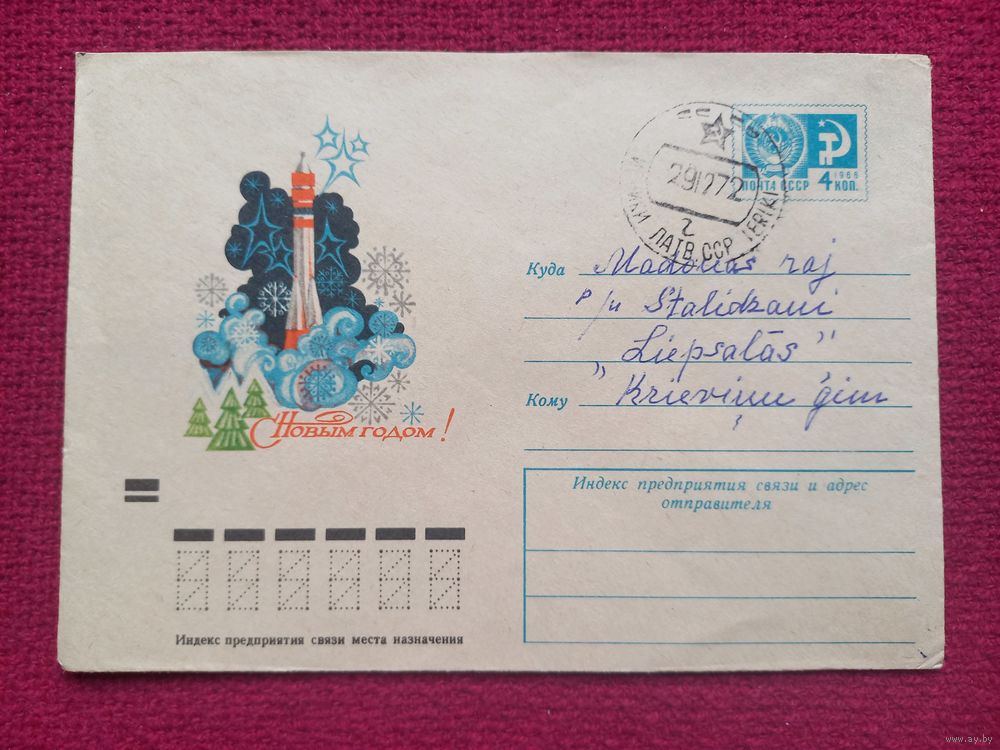 29 12 72
г
ЛАТВ. ССР
ПОЧТА СССР
1966
4 КОП.
Куда Madonas raj
p/n Stalidzani
"Liepsalās"
Кому Krieviņu ģim
С Новым годом!
Индекс предприятия связи и адрес
отправителя
Индекс предприятия связи места назначения
www.ay.by